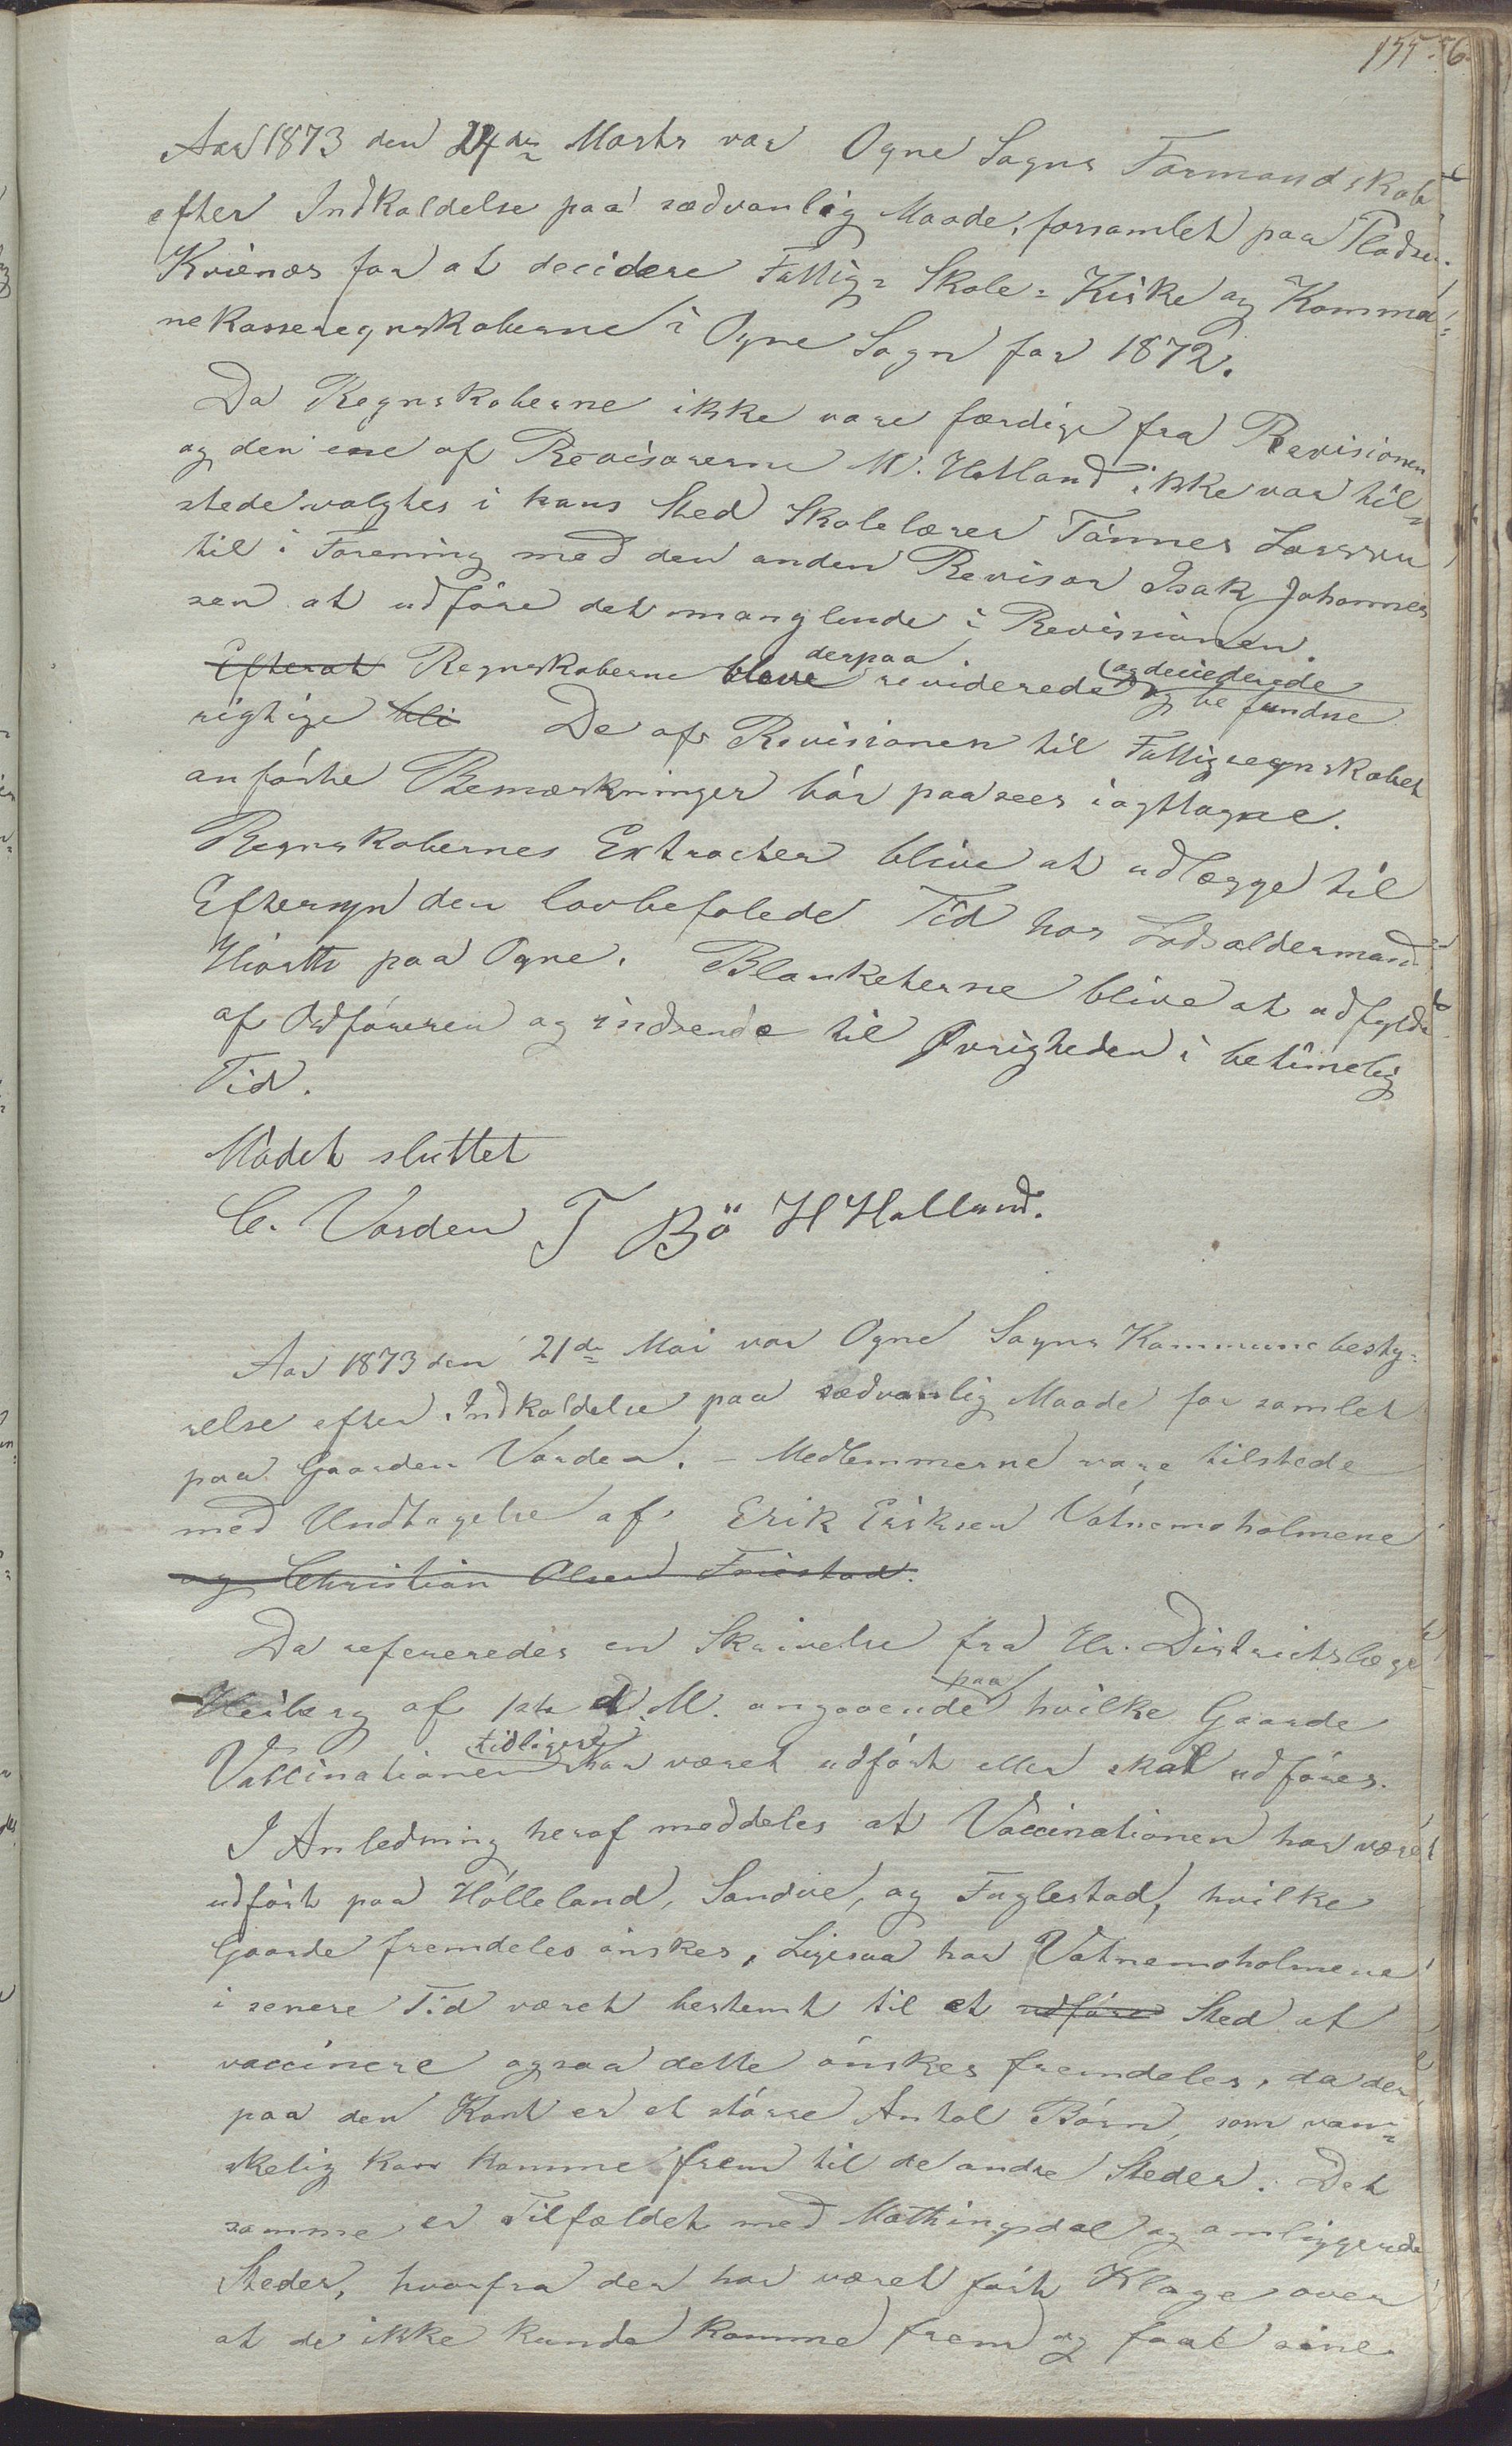 155
6
Aar 1873 den 24de Marts var Ogne Sogns Formandskab
efter Indkaldelse paa sædvanlig Maade, forsamlet paa Pladsen
Kvienæs for at decidere Fattig= Skole= Kirke og Kommu=
nekasseregnskaberne i Ogne Sogn for 1872.
Da Regnskaberne ikke vare færdige fra Revisionen
og den ene af Revisorerne M. Hetland ikke var til=
stede valgtes i hans Sted Skolelærer Tönnes Larssen
til i Forening med den anden Revisor Isak Johannes
sen at udföre det manglende i Revissionen.
Efterat Regnskaberne bleve derpaa reviderede og deciderede og befundne
rigtige bli De af Revisionen til Fattigregnskabet
anförte Bemærkninger bör paasees iagttagne.
Regnskabernes Extracter blive at udlægge til
Eftersyn den lovbefalede Tid hos Lodsoldermand
Hiorth paa Ogne. Blanketerne blive at udfylde
af Ordföreren og indsende til Øvrigheden i betimelig
Tid.
Mödet sluttet
C. Varden T Bö H Halland.
Aar 1873 den 21de Mai var Ogne Sogns Kommunebesty=
relse efter Indkaldelse paa sædvanlig Maade forsamlet
paa Gaarden Varden. - Medlemmerne vare tilstede
med Undtagelse af Erik Eriksen Vatnemoholmene
og Christian Olsen Friestad.
Da refereredes en Skrivelse fra Hr. Districtslæge
Heiberg af 1ste d. M. angaaende paa hvilke Gaarde
Vaccinationen tidligere har været udfört eller skal udföres.
I Anledning heraf meddeles at Vaccinationen har været
udfört paa Hölleland, Sandve, og Fuglestad, hvilke
Gaarde fremdeles önskes, Ligesaa har Vatnemoholmene
i senere Tid været bestemt til et udföre Sted at
vaccinere ogsaa dette önskes fremdeles, da der
paa den Kant er et större Antal Börn, som van=
skelig kan komme frem til de andre Steder. Det
samme er Tilfældet med Mattingsdal og omliggende
Steder, hvorfra der har været fört Klage over
at de ikke kunde komme frem og faae sine